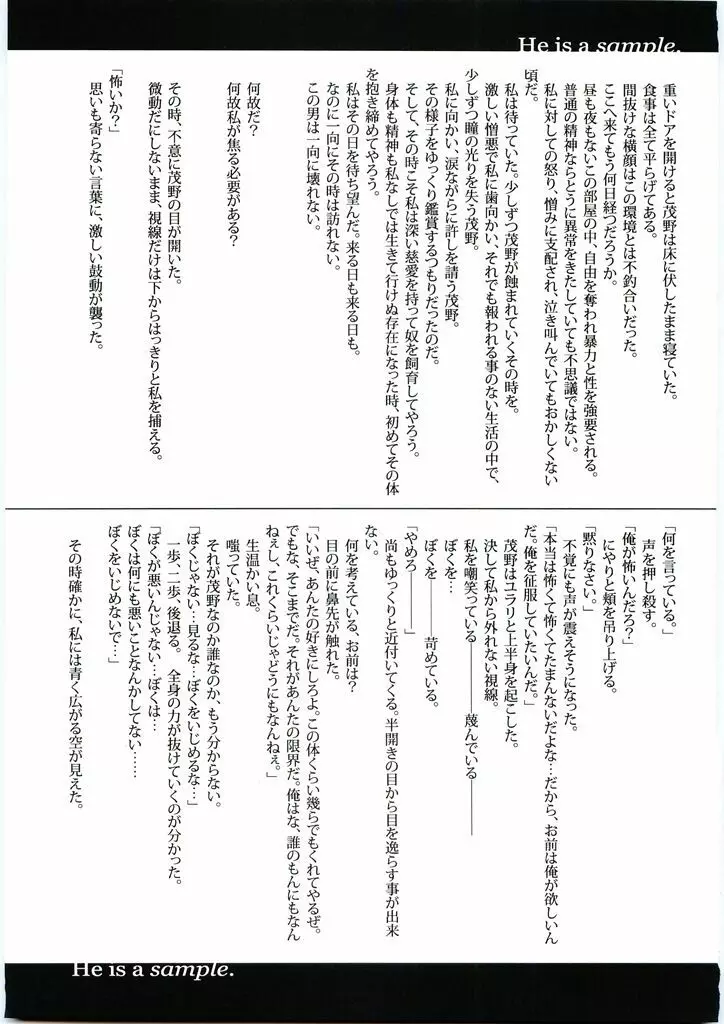 He is a sample.
重いドアを開けると茂野は床に伏したまま寝ていた。
食事は全て平らげてある。
間抜けな横顔はこの環境とは不釣合いだった。
ここへ来てもう何日経つだろうか。
昼も夜もないこの部屋の中、自由を奪われ暴力と性を強要される。
普通の精神ならとうに異常をきたしていても不思議ではない。
私に対しての怒り、憎みに支配され、泣き叫んでいてもおかしくない
頃だ。
私は待っていた。少しずつ茂野が蝕まれていくその時を。
激しい憎悪で私に歯向かい、それでも報われる事のない生活の中で、
少しずつ瞳の光りを失う茂野。
私に向かい、涙ながらに許しを請う茂野。
その様子をゆっくり鑑賞するつもりだったのだ。
そして、その時こそ私は深い慈愛を持って奴を飼育してやろう。
身体も精神も私なしでは生きて行けぬ存在になった時、初めてその体
を抱き締めてやろう。
私はその日を待ち望んだ。来る日も来る日も。
なのに一向にその時は訪れない。
この男は一向に壊れない。
何故だ?
何故私が焦る必要がある?
その時、不意に茂野の目が開いた。
微動だにしないまま、視線だけは下からはっきりと私を捕える。
「怖いか?」
思いも寄らない言葉に、激しい鼓動が襲った。
「何を言っている。」
声を押し殺す。
「俺が怖いんだろ?」
にやりと頬を吊り上げる。
「黙りなさい。」
不覚にも声が震えそうになった。
「本当は怖くて怖くてたまんないだよな…だから、お前は俺が欲しいん
だ。俺を征服していたいんだ。」
茂野はユラリと上半身を起こした。
決して私から外れない視線。
私を嘲笑っている――――蔑んでいる――――
ぼくを…
ぼくを――――苛めている。
「やめろ――――」
尚もゆっくりと近付いてくる。半開きの目から目を逸らす事が出来
ない。
何を考えている、お前は?
目の前に鼻先が触れた。
「いいぜ、あんたの好きにしろよ。この体くらい幾らでもくれてやるぜ。
でもな、そこまでだ。それがあんたの限界だ。俺はな、誰のもんにもなん
ねぇし、これくらいじゃどうにもなんねぇ。」
生温かい息。
嗤っていた。
それが茂野なのか誰なのか、もう分からない。
「ぼくじゃない…見るな…ぼくをいじめるな…」
一歩、二歩、後退る。　全身の力が抜けていくのが分かった。
「ぼくが悪いんじゃない…ぼくは…
ぼくは何にも悪いことなんかしてない……
ぼくをいじめないで…」
その時確かに、私には青く広がる空が見えた。
He is a sample.